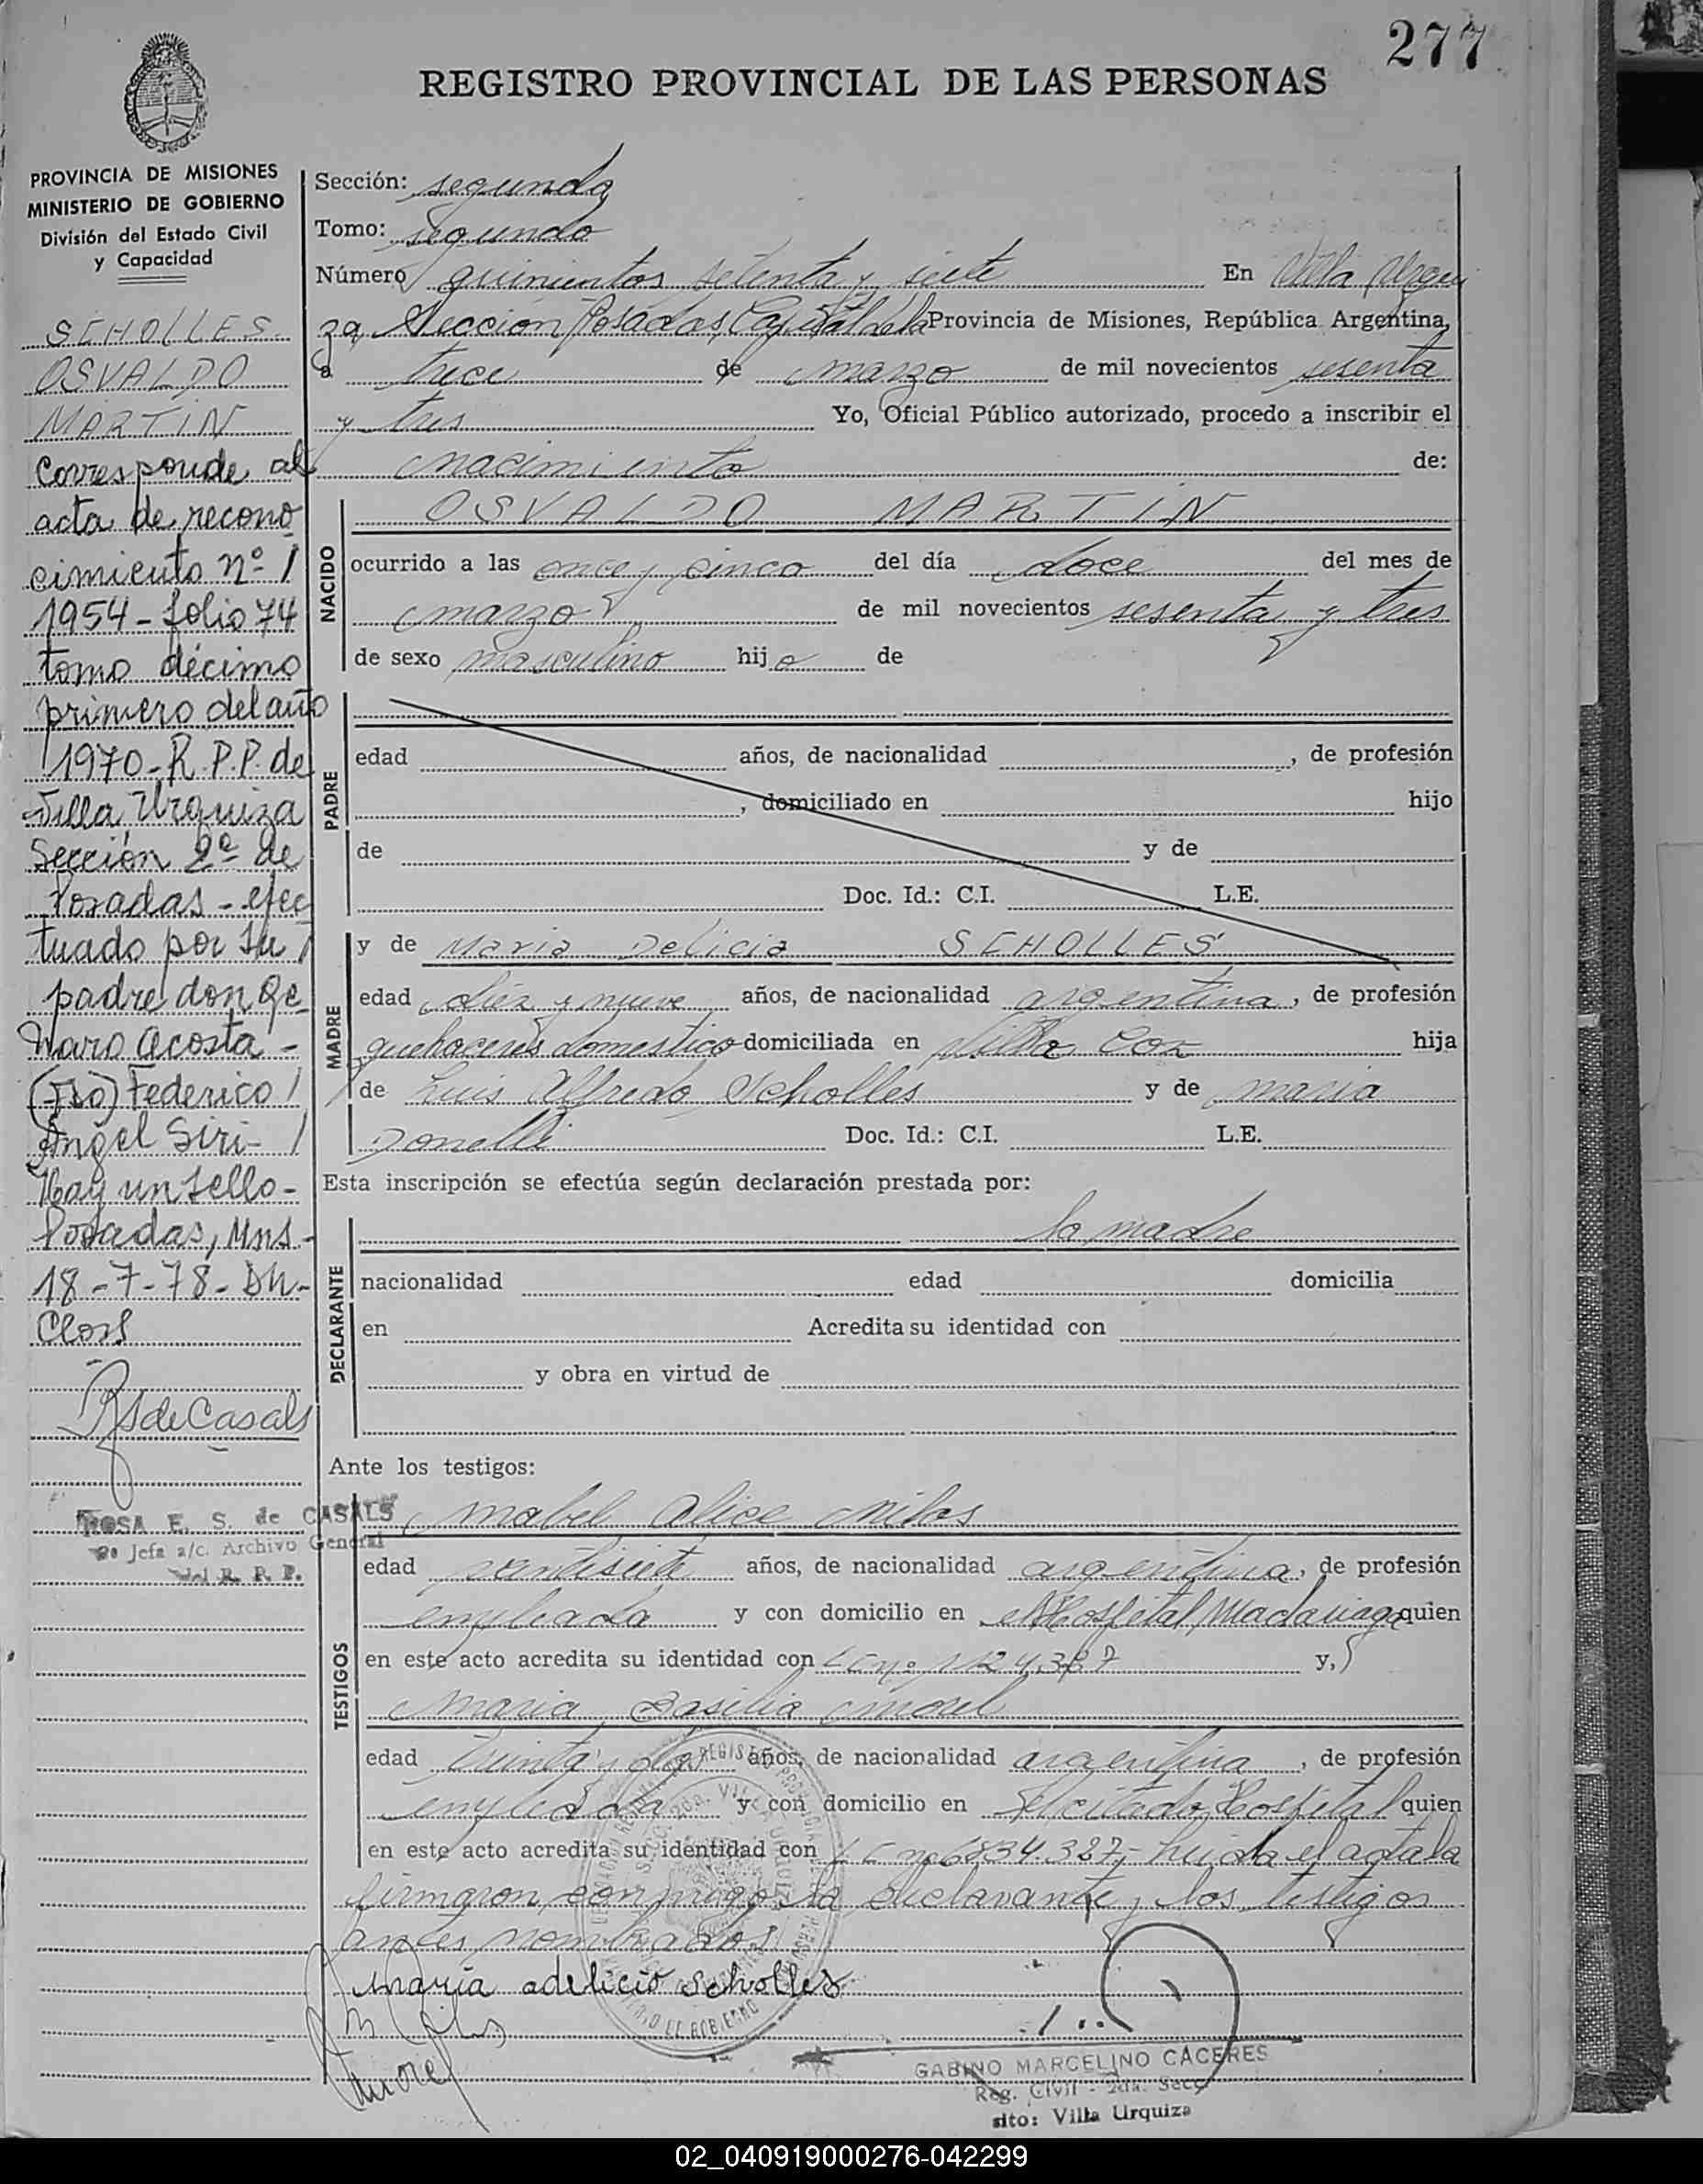 277
REGISTRO PROVINCIAL DE LAS PERSONAS
PROVINCIA DE MISIONES
MINISTERIO DE GOBIERNO
División del Estado Civil
y Capacidad
SCHOLLES
OSVALDO
MARTIN
Corresponde al
acta de recono
cimiento nº /
1954 - folio 74
tomo décimo
primero del año
1970 - R.P.P. de
Villa Urquiza
Sección 2ª de
Posadas - efec
tuado por su /
padre don Ge
naro Acosta -
(Fdo) Federico /
Angel Siri - /
Hay un sello -
Posadas, Mns -
18-7-78 -
RSdeCasals
ROSA E. S. de CASALS
Jefa a/c. Archivo General
del R. P. P.
Sección: segunda
Tomo: segundo
Número quinientos setenta y siete En Villa Urqui
za, Sección Posadas, Capital de la Provincia de Misiones, República Argentina,
a trece de marzo de mil novecientos sesenta
y tres Yo, Oficial Público autorizado, procedo a inscribir el
nacimiento de:
NACIDO
OSVALDO MARTIN
ocurrido a las once y cinco del día doce del mes de
marzo de mil novecientos sesenta y tres
de sexo masculino hijo de
PADRE
edad años, de nacionalidad , de profesión
, domiciliado en hijo
de y de
Doc. Id.: C.I. L.E.
MADRE
y de Maria Delicia SCHOLLES
edad diez y nueve años, de nacionalidad argentina, de profesión
quehaceres domestico domiciliada en Villa Cox hija
de Luis Alfredo Scholles y de maria
Donelli Doc. Id.: C.I. L.E.
Esta inscripción se efectúa según declaración prestada por:
DECLARANTE
la madre
nacionalidad edad domicilia
en Acredita su identidad con
y obra en virtud de
Ante los testigos:
TESTIGOS
Mabel Alice
edad ventisiete años, de nacionalidad argentina, de profesión
empleada y con domicilio en el Hospital Madariaga quien
en este acto acredita su identidad con LC nº y,
Maria Basilia Morel
edad treinta y dos años, de nacionalidad argentina, de profesión
empleada y con domicilio en el citado Hospital quien
en este acto acredita su identidad con LC nº 6834.327,- Leida el acta la
firmaron conmigo la declarante y los testigos
antes nombrados
Maria adelicia Scholles
Morel
GABINO MARCELINO CACERES
Reg. Civil - 2da. Secc
sito: Villa Urquiza
02_040919000276-042299